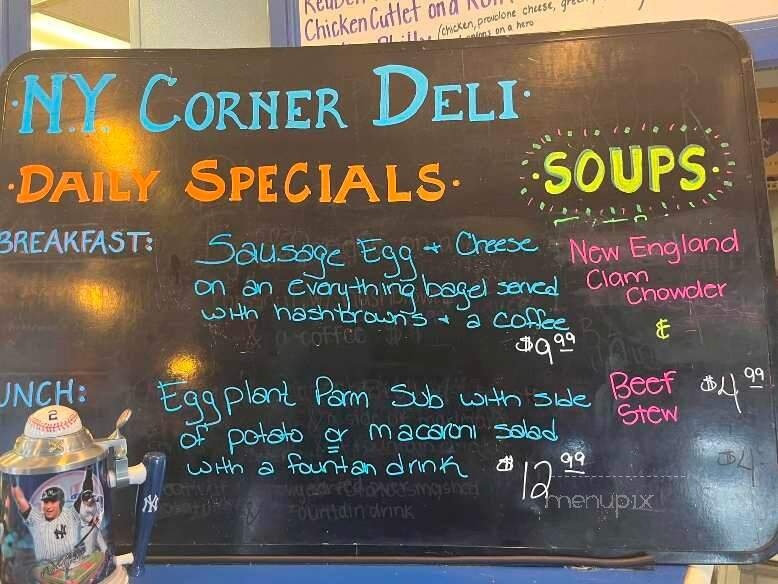 Chicken Cutlet on a
(chicken, provolone cheese,
on a hero
N.Y. CORNER DELI
DAILY SPECIALS
SOUPS
BREAKFAST:
Sausage Egg + Cheese
on an everything bagel served
with hashbrowns + a coffee
$9.99
New England
Clam
Chowder
&
Beef
Stew
$4.99
LUNCH:
Eggplant Parm Sub with side
of potato or macaroni salad
with a fountan drink
$12.99
$4
menupix
fountain drink
2
NY